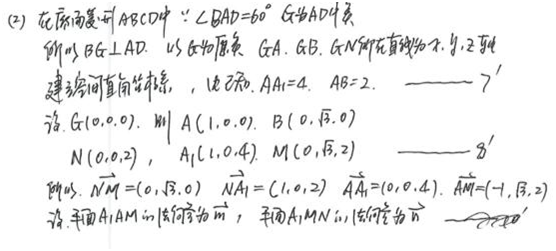 (2) 在底面菱形ABCD中 ∵∠BAD=60° G为AD中点
所以BG⊥AD. 以G为原点 GA. GB. GN所在直线为x.y.z轴
建立空间直角坐标系, 由已知. AA₁=4. AB=2. ——— 7'
设. G(0.0.0). 则 A(1.0.0). B(0,√3.0)
N(0,0,2), A₁(1,0.4). M(0,√3,2) ——— 8'
所以. NM→=(0,√3.0) NA₁→=(1,0,2) AA₁→=(0,0.4). AM→=(-1,√3,2)
设.平面A₁AM的法向量为m→, 平面A₁MN的法向量为n→